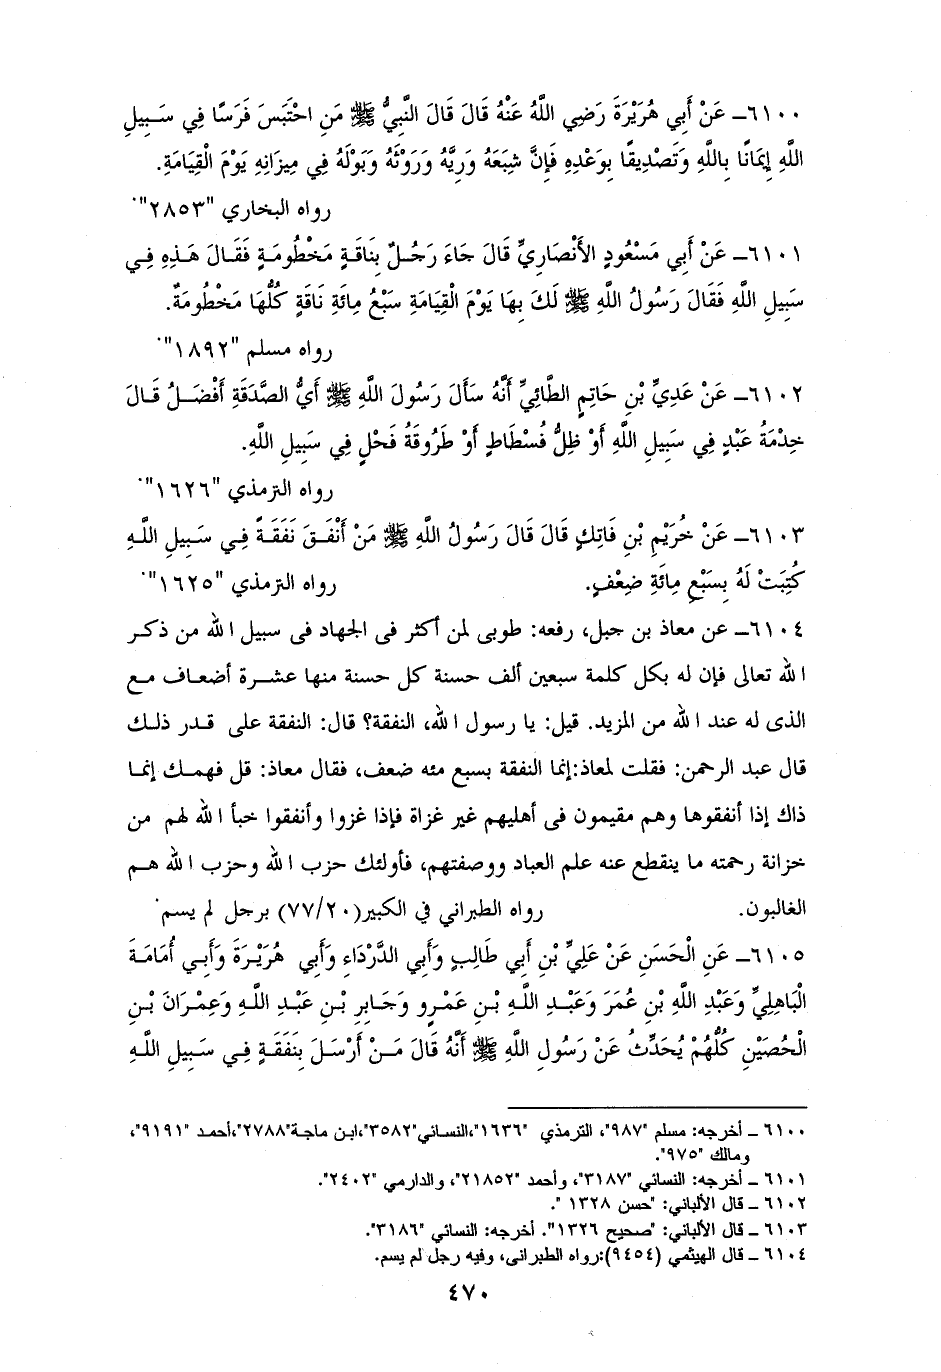 ٦١٠٠ــ عَنْ أَبِي هُرَيْرَةَ رَضِي اللَّهُ عَنْهُ قَالَ قَالَ النَّبِيُّ ﷺ مَنِ احْتَبَسَ فَرَسًا فِي سَبِيلِ
اللَّهِ إِيمَانًا بِاللَّهِ وَتَصْدِيقًا بِوَعْدِهِ فَإِنَّ شِبَعَهُ وَرِيَّهُ وَرَوْثَهُ وَبَوْلَهُ فِي مِيزَانِهِ يَوْمَ الْقِيَامَةِ.
رواه البخاري "٢٨٥٣".
٦١٠١ــ عَنْ أَبِي مَسْعُودٍ الأَنْصَارِيِّ قَالَ جَاءَ رَجُلٌ بِنَاقَةٍ مَخْطُومَةٍ فَقَالَ هَذِهِ فِي
سَبِيلِ اللَّهِ فَقَالَ رَسُولُ اللَّهِ ﷺ لَكَ بِهَا يَوْمَ الْقِيَامَةِ سَبْعُ مِائَةِ نَاقَةٍ كُلُّهَا مَخْطُومَةٌ.
رواه مسلم "١٨٩٢".
٦١٠٢ــ عَنْ عَدِيِّ بْنِ حَاتِمٍ الطَّائِيِّ أَنَّهُ سَأَلَ رَسُولَ اللَّهِ ﷺ أَيُّ الصَّدَقَةِ أَفْضَلُ قَالَ
خِدْمَةُ عَبْدٍ فِي سَبِيلِ اللَّهِ أَوْ ظِلُّ فُسْطَاطٍ أَوْ طَرُوقَةُ فَحْلٍ فِي سَبِيلِ اللَّهِ.
رواه الترمذي "١٦٢٦".
٦١٠٣ــ عَنْ خُرَيْمِ بْنِ فَاتِكٍ قَالَ قَالَ رَسُولُ اللَّهِ ﷺ مَنْ أَنْفَقَ نَفَقَةً فِي سَبِيلِ اللَّهِ
كُتِبَتْ لَهُ بِسَبْعِ مِائَةِ ضِعْفٍ. رواه الترمذي "١٦٢٥".
٦١٠٤ــ عن معاذ بن جبل، رفعه: طوبى لمن أكثر فى الجهاد فى سبيل الله من ذكر
الله تعالى فإن له بكل كلمة سبعين ألف حسنة كل حسنة منها عشرة أضعاف مع
الذى له عند الله من المزيد. قيل: يا رسول الله، النفقة؟ قال: النفقة على قدر ذلك
قال عبد الرحمن: فقلت لمعاذ:إنما النفقة بسبع مئه ضعف، فقال معاذ: قل فهمك إنما
ذاك إذا أنفقوها وهم مقيمون فى أهليهم غير غزاة فإذا غزوا وأنفقوا خبأ الله لهم من
خزانة رحمته ما ينقطع عنه علم العباد ووصفتهم، فأولئك حزب الله وحزب الله هم
الغالبون. رواه الطبراني في الكبير(٧٧/٢٠) برجل لم يسم.
٦١٠٥ــ عَنِ الْحَسَنِ عَنْ عَلِيِّ بْنِ أَبِي طَالِبٍ وَأَبِي الدَّرْدَاءِ وَأَبِي هُرَيْرَةَ وَأَبِي أُمَامَةَ
الْبَاهِلِيِّ وَعَبْدِ اللَّهِ بْنِ عُمَرَ وَعَبْدِ اللَّهِ بْنِ عَمْرٍو وَجَابِرِ بْنِ عَبْدِ اللَّهِ وَعِمْرَانَ بْنِ
الْحُصَيْنِ كُلُّهُمْ يُحَدِّثُ عَنْ رَسُولِ اللَّهِ ﷺ أَنَّهُ قَالَ مَنْ أَرْسَلَ بِنَفَقَةٍ فِي سَبِيلِ اللَّهِ
٦١٠٠ ــ أخرجه: مسلم "٩٨٧"، الترمذي "١٦٣٦"،النسائي"٣٥٨٢"،ابن ماجة"٢٧٨٨"،أحمد "٩١٩١"،
ومالك "٩٧٥".
٦١٠١ ــ أخرجه: النسائي "٣١٨٧"، وأحمد "٢١٨٥٢"، والدارمي "٢٤٠٢".
٦١٠٢ ــ قال الألباني: "حسن ١٣٢٨ ".
٦١٠٣ ــ قال الألباني: "صحيح ١٣٢٦". أخرجه: النسائي "٣١٨٦".
٦١٠٤ ــ قال الهيثمي (٩٤٥٤):رواه الطبرانى، وفيه رجل لم يسم.
٤٧٠